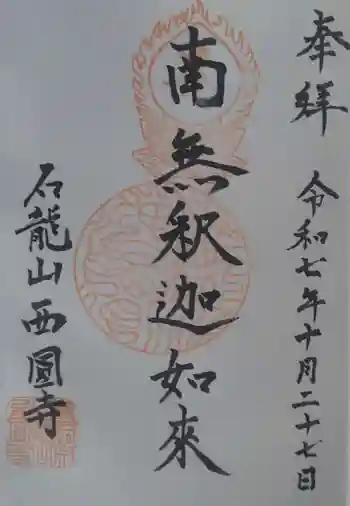 奉拜
令和七年十月二十七日
南無釈迦如來
石龍山西圓寺